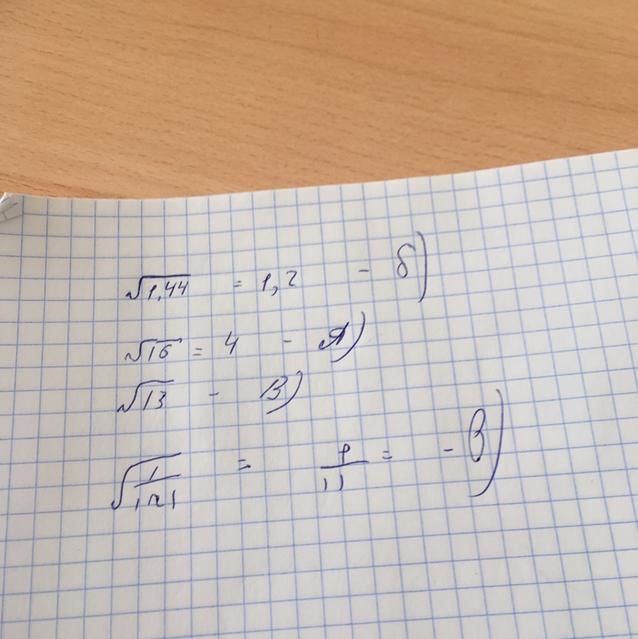 √1,44 = 1,2 - б)
√16 = 4 - А)
√13 - В)
√1/121 = 1/11 = - В)